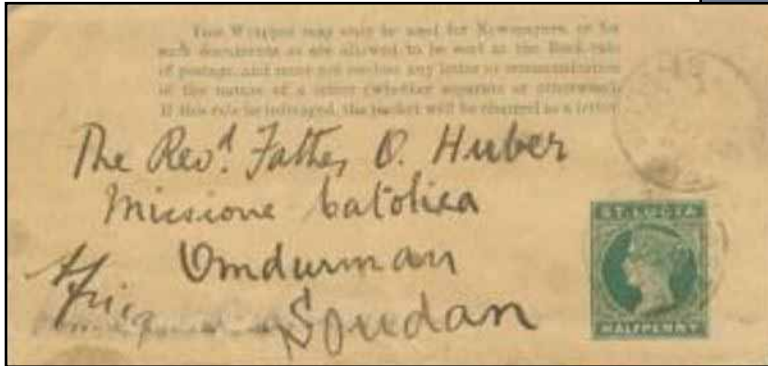 This Wrapper may only be used for Newspapers, or for
such documents as are allowed to be sent at the Book-rate
of postage, and must not enclose any letter or communication
of the nature of a letter (whether separate or otherwise).
If this rule be infringed, the packet will be charged as a letter.
The Revd. Father O. Huber
Missione Catolica
Omdurman
Africa
Soudan
ST. LUCIA
HALFPENNY